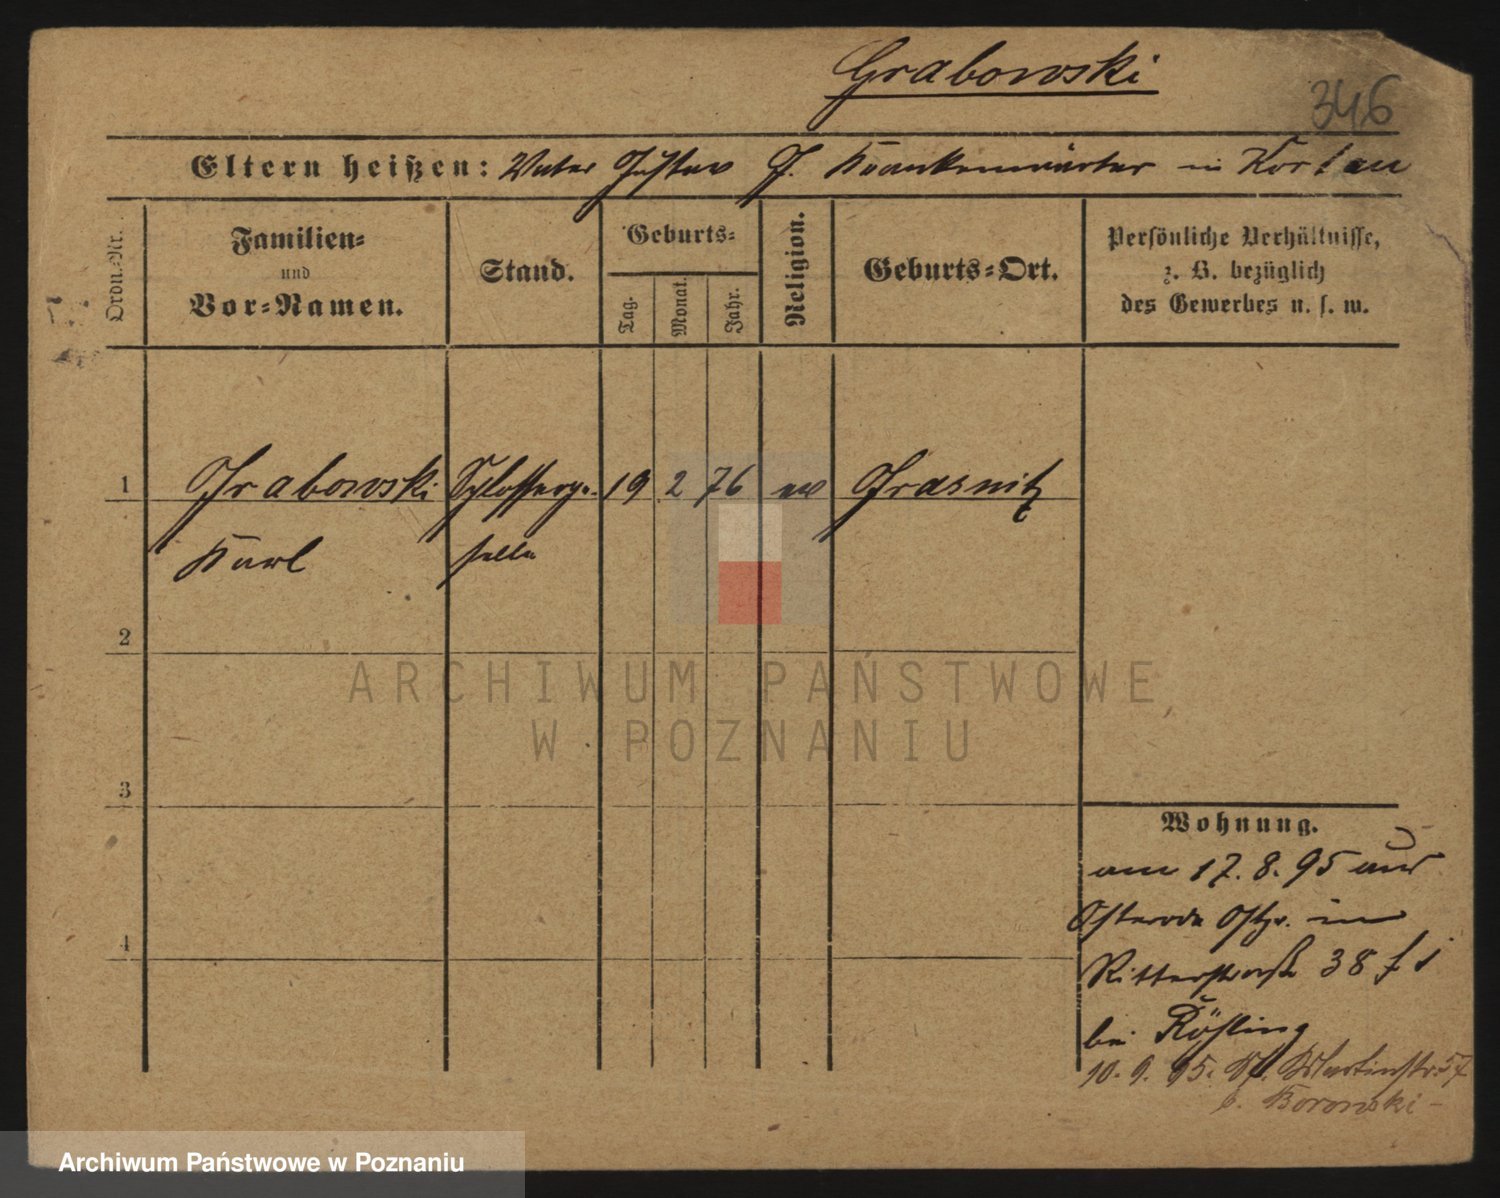 Grabowski
346
Eltern heißen: Vater Gustav G. Krankenwärter in Kortau
Ordn.-Nr.
Familien-
und
Vor-Namen.
Stand.
Geburts-
Tag.
Monat.
Jahr.
Religion.
Geburts-Ort.
Persönliche Verhältnisse,
z. B. bezüglich
des Gewerbes u. s. w.
1 Grabowski Schlosserge- 19 2 76 ev Grasnitz
Karl selle
2
3
4
ARCHIWUM PAŃSTWOWE
W POZNANIU
Wohnung.
am 17.8.95 aus
Osterode Ostpr. in
Ritterstraße 38
bei Rösling
10.9.95. St. Martinstr. 57
b. Borowski
Archiwum Państwowe w Poznaniu